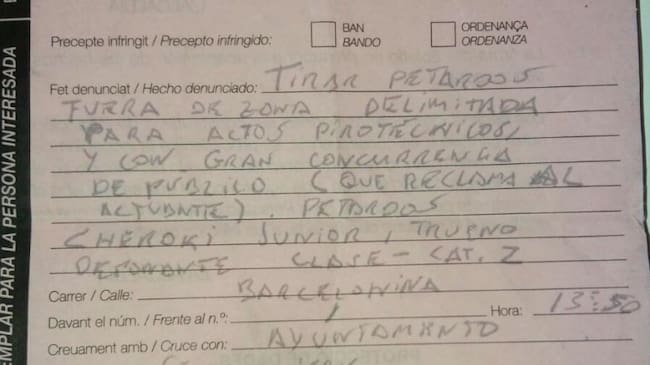 EMPLAR PARA LA PERSONA INTERESADA
Precepte infringit / Precepto infringido:
BAN
BANDO
ORDENANÇA
ORDENANZA
Fet denunciat / Hecho denunciado: TIRAR PETARDOS
FUERA DE ZONA DELIMITADA
PARA ACTOS PIROTÉCNICOS,
Y CON GRAN CONCURRENCIA
DE PÚBLICO (QUE RECLAMA AL
ACTUANTE). PETARDOS
CHEROKI JUNIOR, TRUENO
DETONANTE CLASE - CAT. 2
Carrer / Calle: BARCELONINA
Davant el núm. / Frente al n.º: 1 Hora: 13:50
Creuament amb / Cruce con: AYUNTAMIENTO